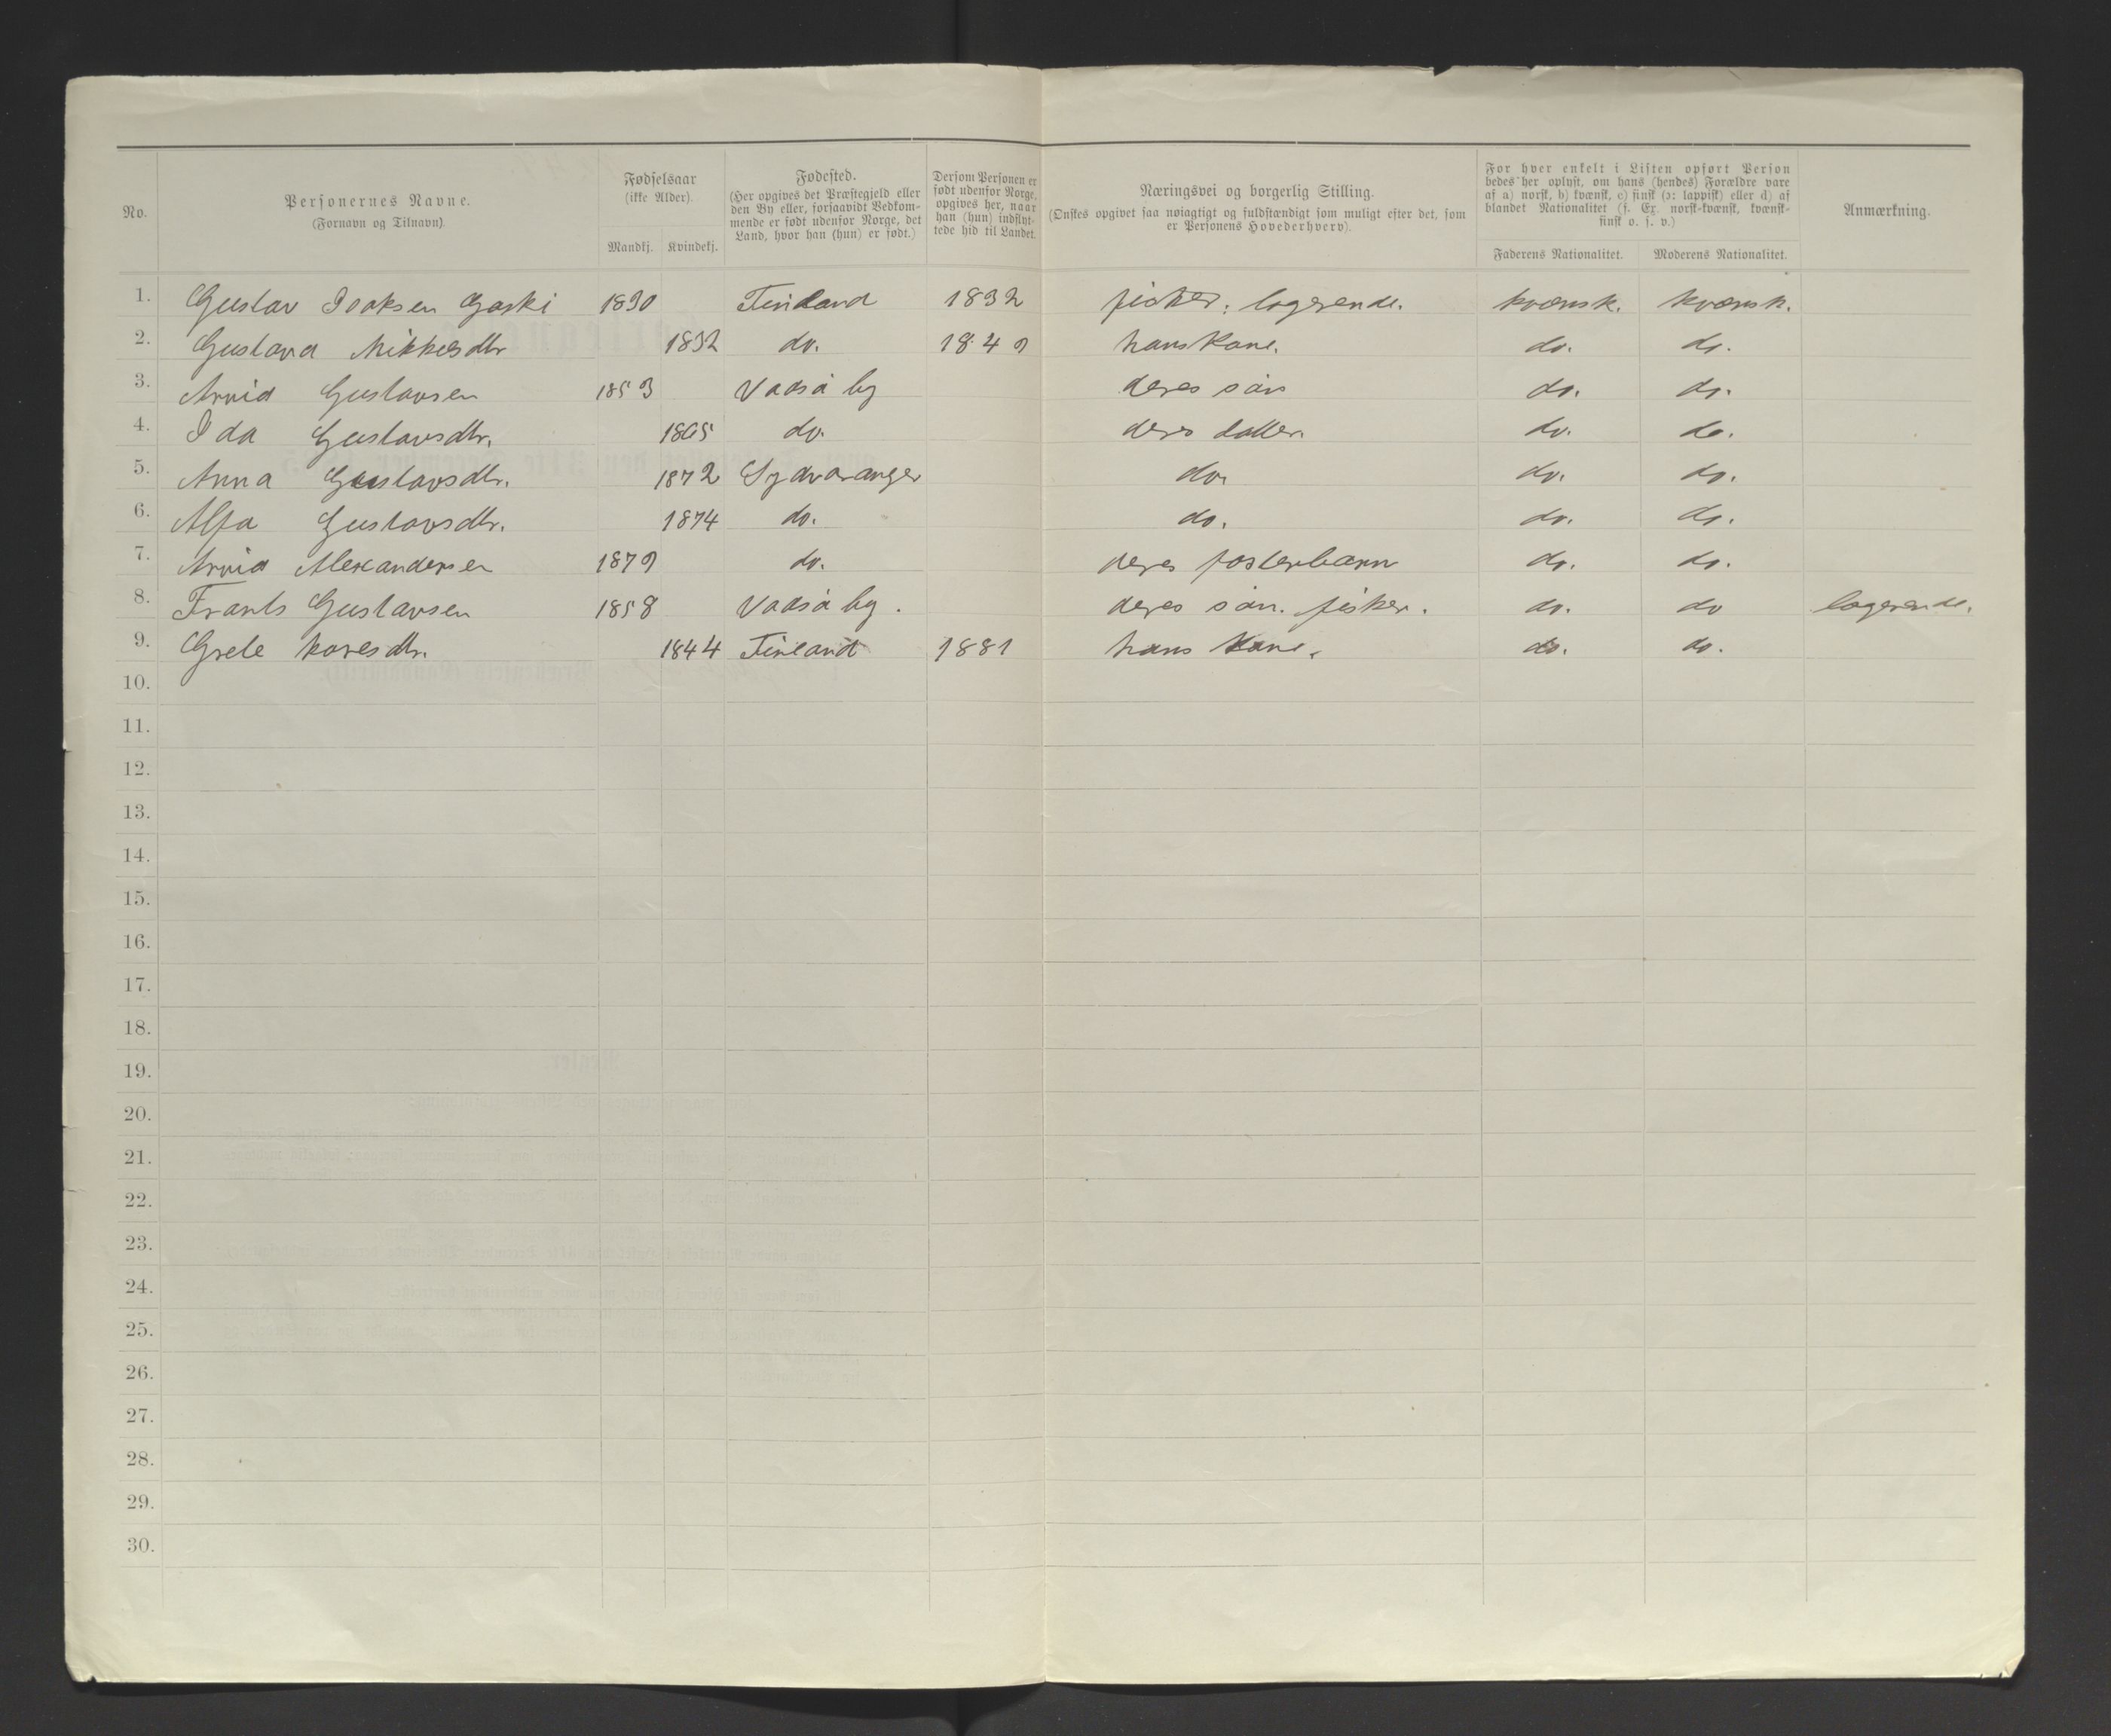 No.
Personernes Navne.
(Fornavn og Tilnavn).
Fødselsaar
(ikke Alder).
Mandkj. Kvindekj.
Fødested.
(Her opgives det Præstegjeld eller
den By eller, forsaavidt Vedkom-
mende er født udenfor Norge, det
Land, hvor han (hun) er født.)
Dersom Personen er
født udenfor Norge,
opgives her, naar
han (hun) indflyt-
tede hid til Landet.
Næringsvei og borgerlig Stilling.
(Ønskes opgivet saa nøiagtigt og fuldstændigt som muligt efter det, som
er Personens Hovederhverv).
For hver enkelt i Listen opført Person
bedes her oplyst, om hans (hendes) Forældre vare
af a) norsk, b) kvænsk, c) finsk (ɔ: lappisk) eller d) af
blandet Nationalitet (f. Ex. norsk-kvænsk, kvænsk-
finsk o. s. v.)
Faderens Nationalitet. Moderens Nationalitet.
Anmærkning.
1. Gustav Isaksen Gaski 1830 Finland 1832 fisker; logerende. kvænsk. kvænsk.
2. Gustava Mikkelsdtr 1832 do. 1849 hans Kone. do. do.
3. Arvid Gustavsen 1853 Vadsö by deres sön do. do.
4. Ida Gustavsdtr. 1865 do. deres datter do. do.
5. Anna Gustavsdtr. 1872 Sydvaranger do. do. do.
6. Alfa Gustavsdtr. 1874 do. do. do. do.
7. Arvid Alexandersen 1879 do. deres fosterbarn do. do.
8. Frants Gustavsen 1858 Vadsö by. deres sön. fisker. do. do logerende.
9. Grete 1844 Finland 1881 hans Kone. do. do.
10.
11.
12.
13.
14.
15.
16.
17.
18.
19.
20.
21.
22.
23.
24.
25.
26.
27.
28.
29.
30.